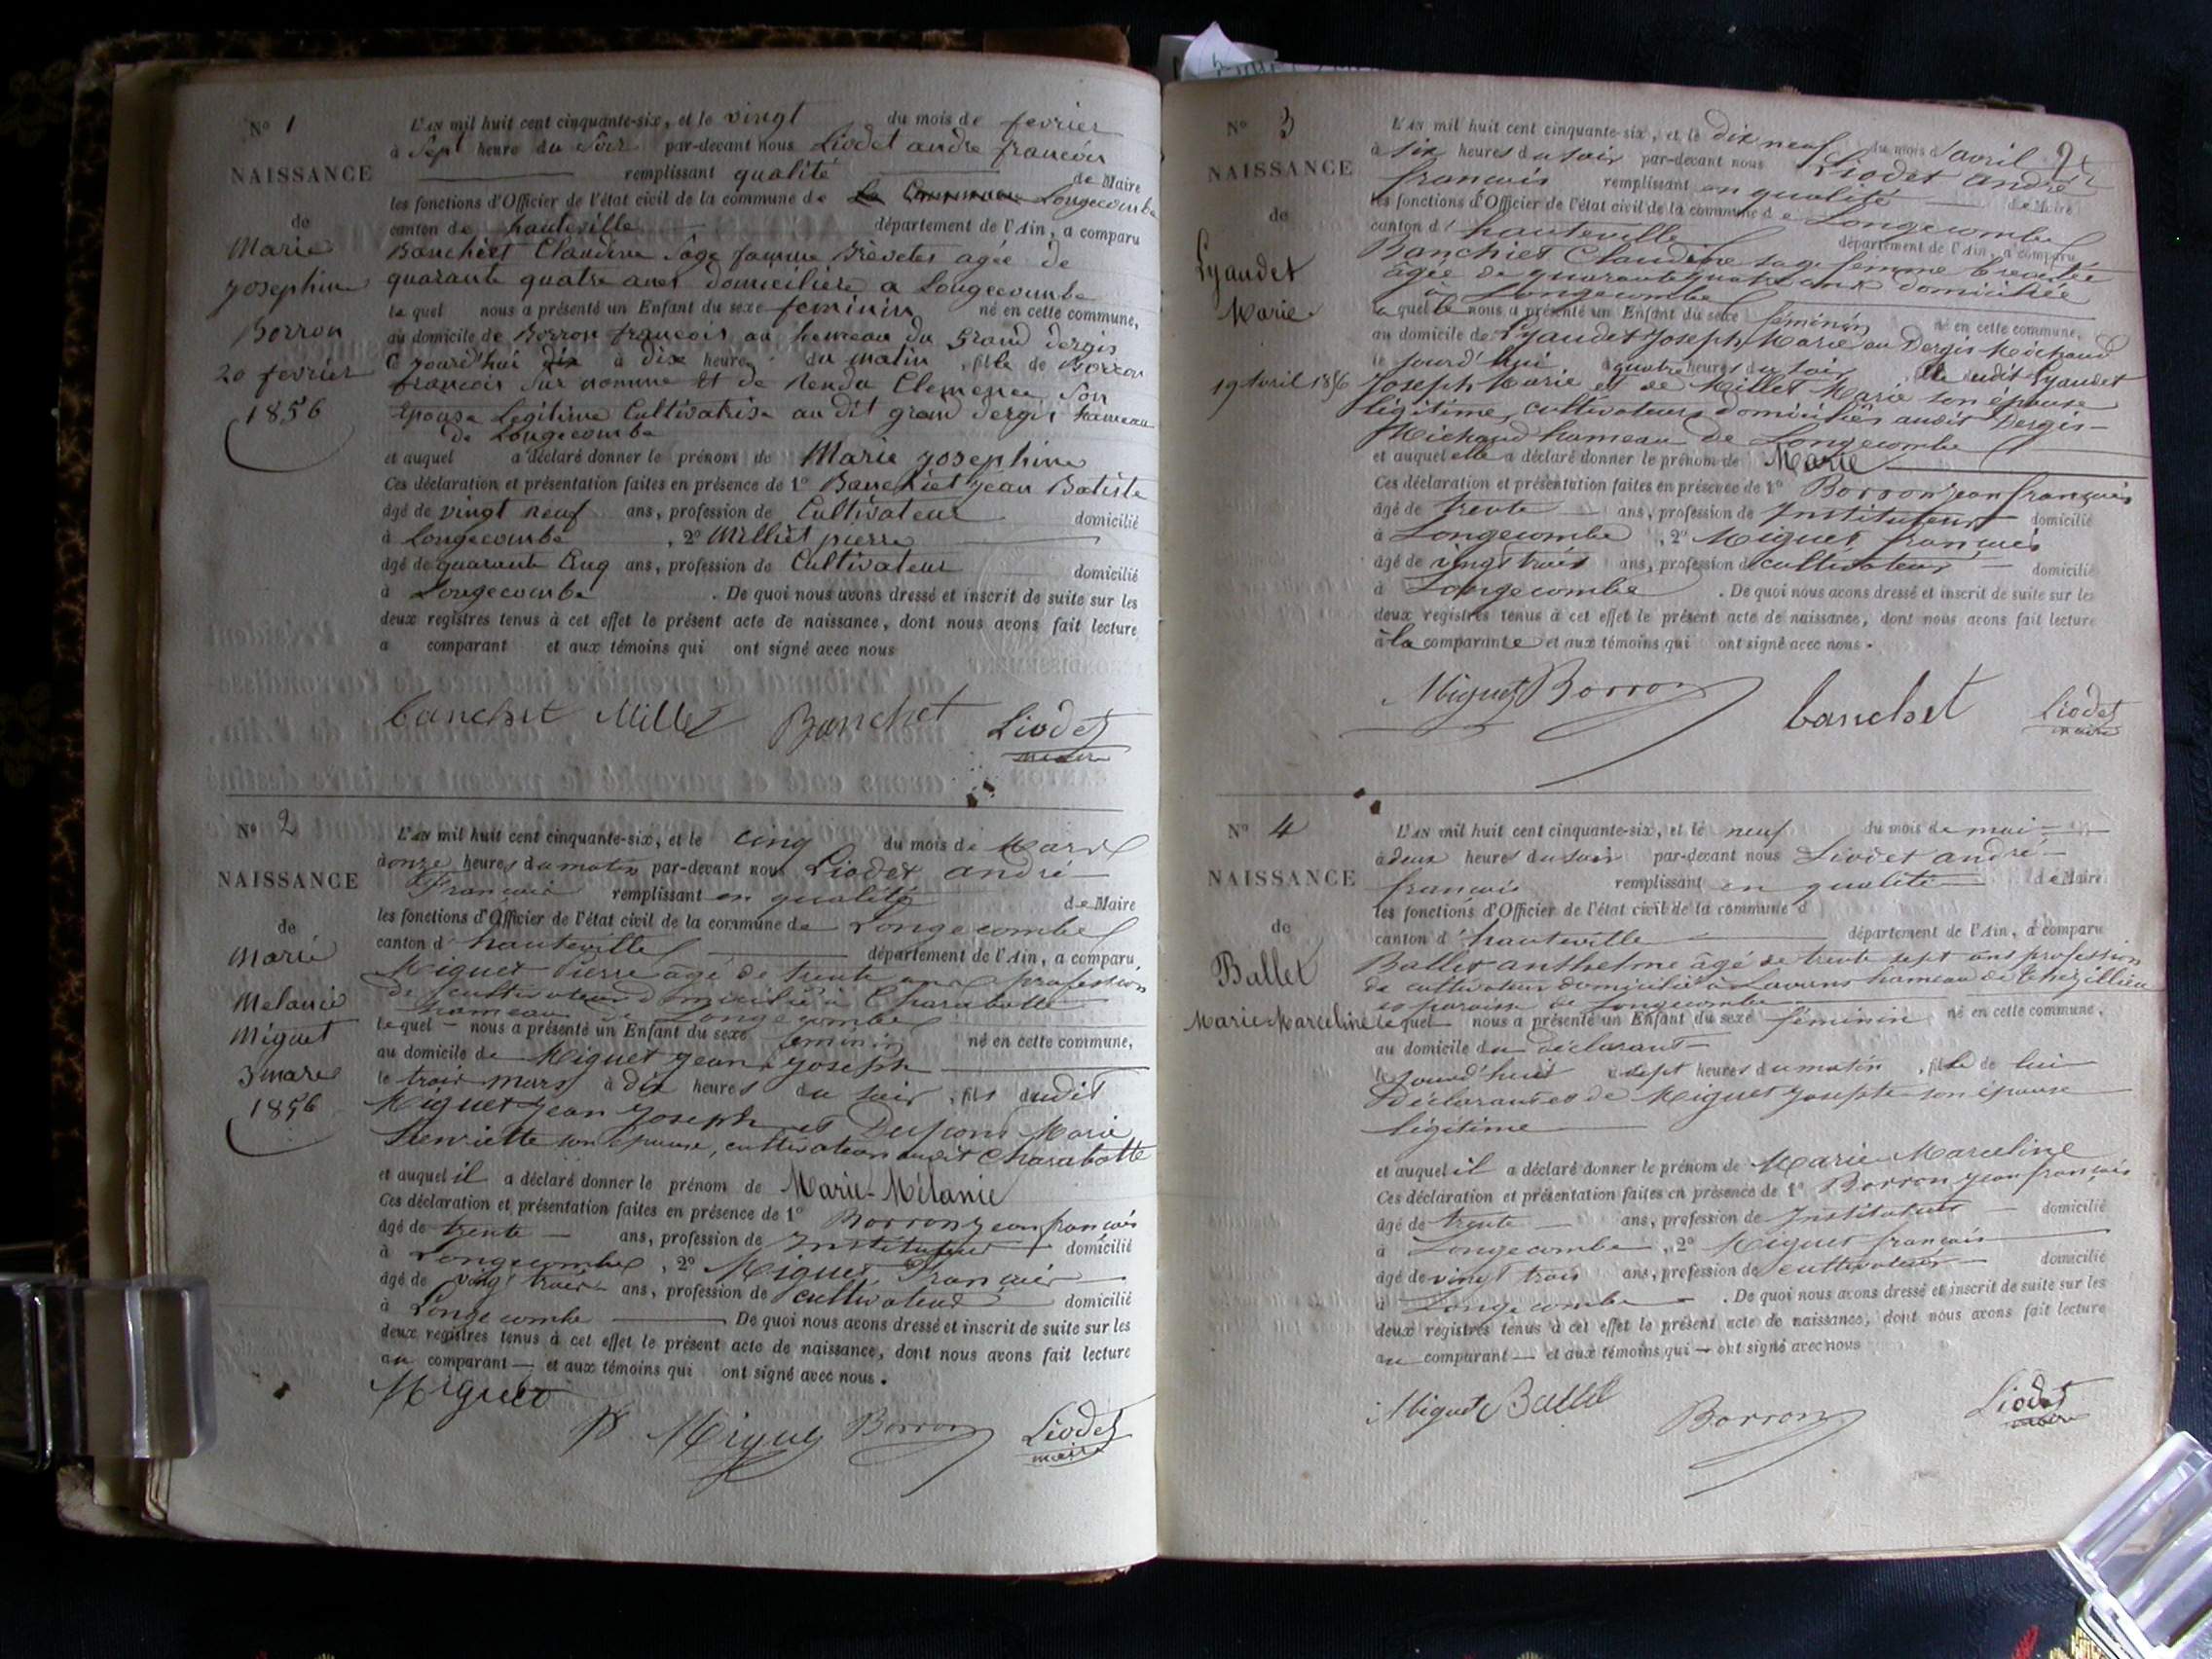 N° 1
NAISSANCE
de
Marie
josephine
Borron
20 fevrier
1856
L'AN mil huit cent cinquante-six, et le vingt du mois de fevrier
à Sept heure du Soir par-devant nous Liodet andre francois
remplissant qualité de Maire
les fonctions d'Officier de l'état civil de la commune de Longecombe
canton de hauteville département de l'Ain, a comparu
Banchet Claudine Sage famme Brevetes agée de
quarante quatre anes domicilière a Longecombe
la quel nous a présenté un Enfant du sexe feminin né en cette commune,
au domicile de Borron francois au hameau du Grand dergis
Ce jourd'hui dix à dix heure du matin, fille de Borron
francois Sur nomme et de Clemence Son
Epouse Legitime Cultivatrise au dit grand dergis hameau
de Longecombe
et auquel a déclaré donner le prénom de Marie josephine
Ces déclaration et présentation faites en présence de 1° Banchet jean Batiste
âgé de vingt neuf ans, profession de Cultivateur domicilié
à Longecombe, 2° Milliet pierre
âgé de quarante Cinq ans, profession de Cultivateur domicilié
à Longecombe. De quoi nous avons dressé et inscrit de suite sur les
deux registres tenus à cet effet le présent acte de naissance, dont nous avons fait lecture
a comparant et aux témoins qui ont signé avec nous
banchet Millet Banchet Liodet
maire
N° 2
NAISSANCE
de
Marie
Melanie
Miguet
3 mars
1856
L'AN mil huit cent cinquante-six, et le cinq du mois de Mars
à onze heures du matin par-devant nous Liodet andré
François remplissant en qualité de Maire
les fonctions d'Officier de l'état civil de la commune de Longecombe
canton d'hauteville département de l'Ain, a comparu
Miguet Pierre âgé de trente ans profession
de cultivateur domicilié à Charabotte
hameau de Longecombe
lequel nous a présenté un Enfant du sexe feminin né en cette commune,
au domicile de Miguet jean joseph
le trois mars à dix heures du soir, fils dudit
Miguet jean joseph et Dupont Marie
Henriette son épouse, cultivateurs audit Charabotte
et auquel il a déclaré donner le prénom de Marie-Mélanie
Ces déclaration et présentation faites en présence de 1° Borron jean françois
âgé de trente ans, profession de Instituteur domicilié
à Longecombe, 2° Miguet François
âgé de vingt trois ans, profession de cultivateur domicilié
à Longecombe De quoi nous avons dressé et inscrit de suite sur les
deux registres tenus à cet effet le présent acte de naissance, dont nous avons fait lecture
au comparant et aux témoins qui ont signé avec nous.
Miguet
Miguet Borron Liodet
maire
N° 3
2
NAISSANCE
de
Lyaudet
Marie
19 Avril 1856
L'AN mil huit cent cinquante-six, et le dix neuf du mois d'avril
à six heures du soir par-devant nous Liodet andré
francois remplissant en qualité de Maire
les fonctions d'Officier de l'état civil de la commune de Longecombe
canton d'hauteville département de l'Ain, a comparu
Banchet Claudine sage femme brevetée
âgée de quarante quatre ans domiciliée
à Longecombe
laquelle nous a présenté un Enfant du sexe féminin né en cette commune,
au domicile de Lyaudet Joseph Marie au Dergis Michaud
le jourd'hui à quatre heures du soir, fille dudit Lyaudet
Joseph Marie et de Millet Marie son épouse
légitime, cultivateurs domiciliés audit Dergis-
Michaud hameau de Longecombe
et auquel elle a déclaré donner le prénom de Marie
Ces déclaration et présentation faites en présence de 1° Borron jean françois
âgé de trente ans, profession de Instituteur domicilié
à Longecombe, 2° Miguet françois
âgé de vingt trois ans, profession de cultivateur domicilié
à Longecombe. De quoi nous avons dressé et inscrit de suite sur les
deux registres tenus à cet effet le présent acte de naissance, dont nous avons fait lecture
à la comparante et aux témoins qui ont signé avec nous.
Miguet Borron banchet Liodet
maire
N° 4
NAISSANCE
de
Ballet
Marie Marceline
L'AN mil huit cent cinquante-six, et le neuf du mois de mai
à deux heures du soir par-devant nous Liodet andré
françois remplissant en qualité de Maire
les fonctions d'Officier de l'état civil de la commune d
canton d'hauteville département de l'Ain, a comparu
Ballet anthelme âgé de trente sept ans profession
de cultivateur domicilié à Lavans hameau de Thézillieu
et paroisse de Longecombe
lequel nous a présenté un Enfant du sexe féminin né en cette commune,
au domicile du déclarant
le jourd'hui à sept heures du matin, fille de lui
déclarant et de Miguet josepte son épouse
légitime
et auquel il a déclaré donner le prénom de Marie Marceline
Ces déclaration et présentation faites en présence de 1° Borron jean françois
âgé de trente ans, profession de Instituteur domicilié
à Longecombe, 2° Miguet françois
âgé de vingt trois ans, profession de cultivateur domicilié
à Longecombe. De quoi nous avons dressé et inscrit de suite sur les
deux registres tenus à cet effet le présent acte de naissance, dont nous avons fait lecture
au comparant et aux témoins qui ont signé avec nous
Miguet Ballet Borron Liodet
maire